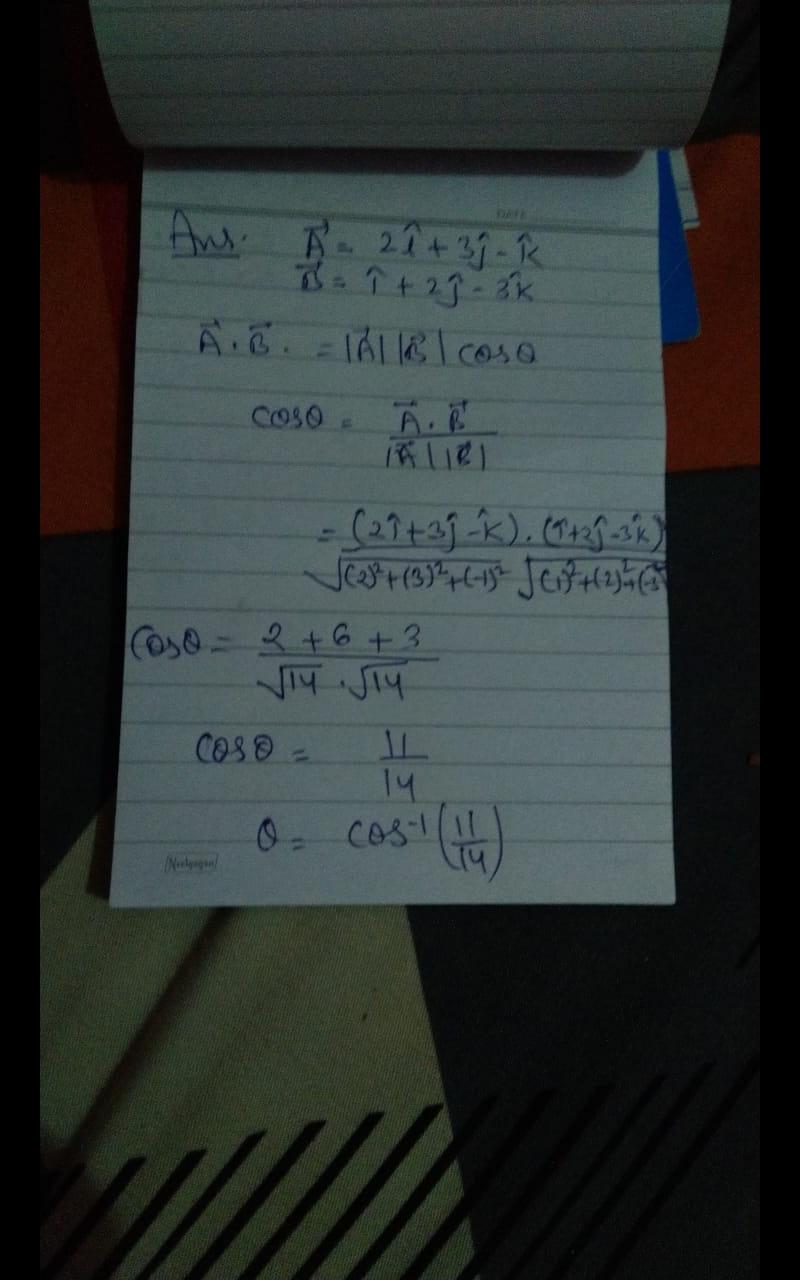 DATE
Ans. A⃗ = 2î + 3ĵ - k̂
B⃗ = î + 2ĵ - 3k̂
A⃗ . B⃗ . = |A⃗| |B⃗| cosθ
cosθ = A⃗ . B⃗
|A⃗| |B⃗|
= (2î+3ĵ-k̂) . (î+2ĵ-3k̂)
√(2)²+(3)²+(-1)² √(1)²+(2)²+(-3)²
Cosθ = 2 + 6 + 3
√14 . √14
cosθ = 11
14
θ = cos⁻¹(11/14)
Neelgagan